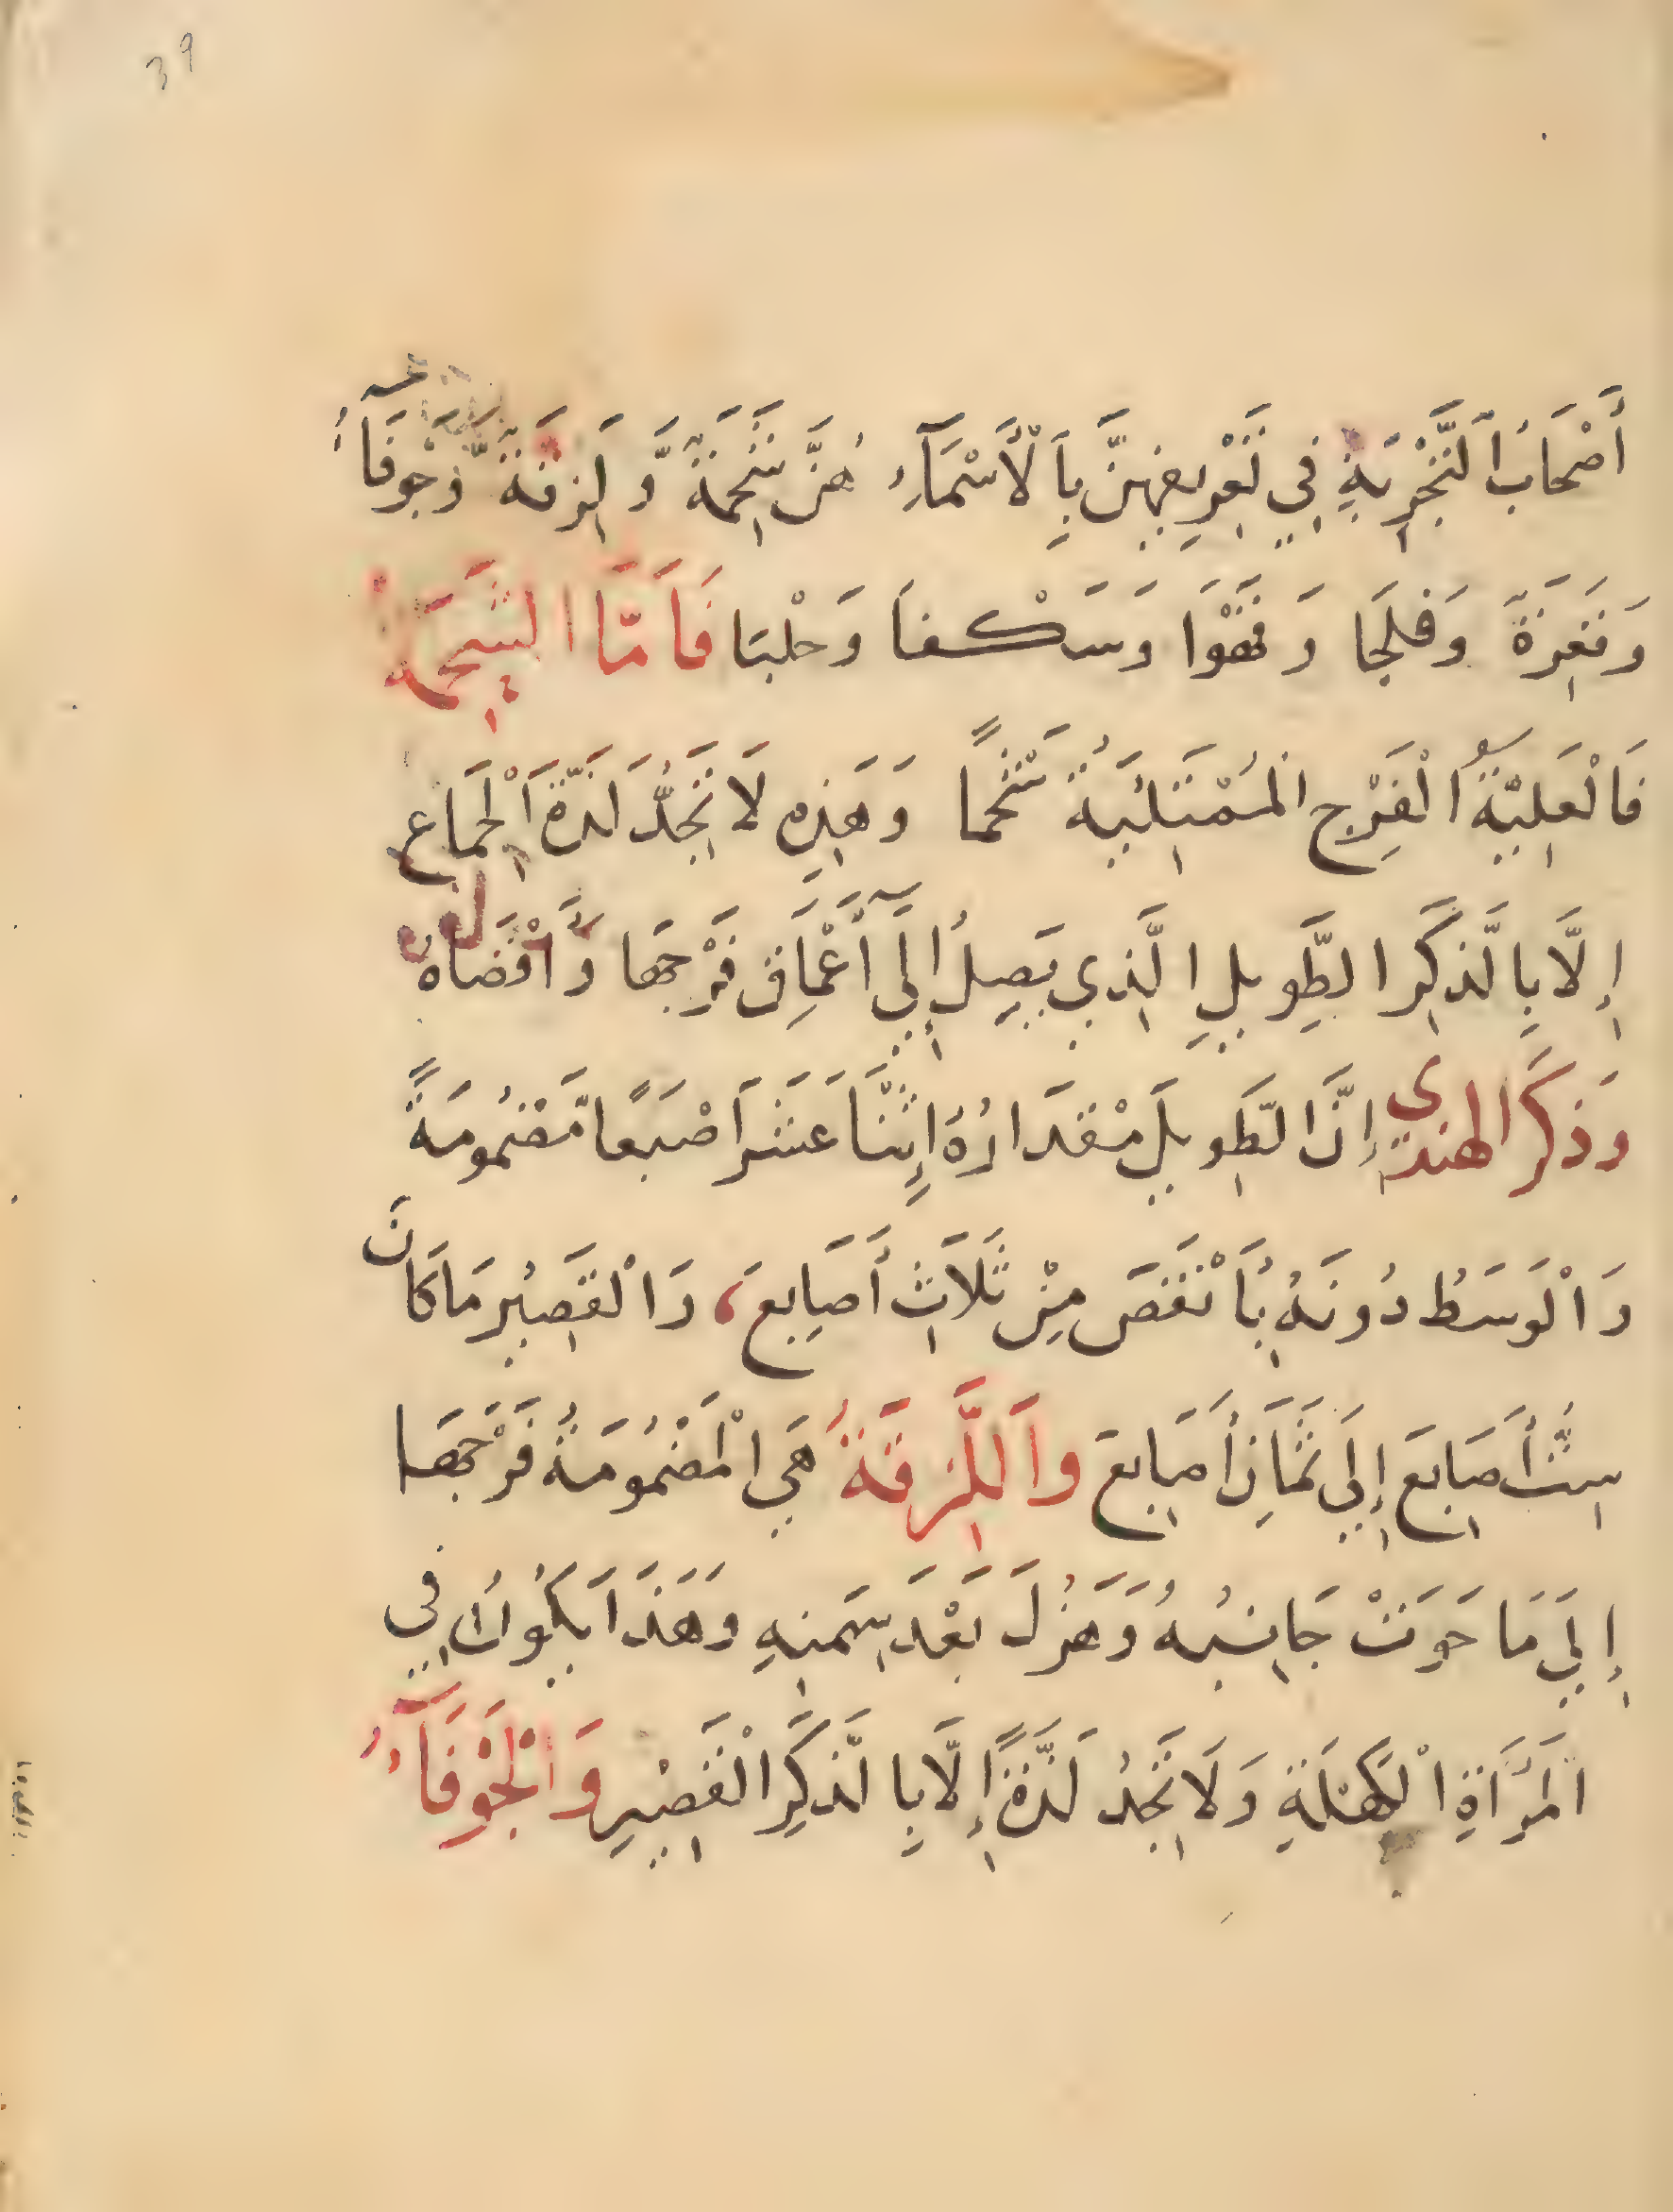 39
أَصْحَابُ اَلتَّجْرِبَةِ فِي تَعْرِيفِهِنَّ بِاَلْأَسْمَآءِ هُنَّ شَحِمَةٌ وَّلَزِقَةٌ وَّجَوْفَآءُ
وَقَعِرَةٌ وَفلجَا وَقَفْوَا وَسَكْفَا وَحلْبَا فَاَمَّا الشَّحِمَةُ
فَالْعَلِيَّةُ الْفَرْجِ المُمْتَلِئَيَةُ شَحْمًا وَهَذِهِ لَا تَجِدُ لَذَّةَ اَلْجِمَاعِ
إِلَّا بِالذَّكَرِ الطَّوِيلِ الَّذِي يَصِلُ إِلَيَ أَعْمَاقِ فَرْجِهَا وَأَقْصَاهُ
وَذَكَرَ الهندي إِنَّ الطَّوِيلَ مْقدَارُهُ إِثْنَا عَشَرَ اَصْبَعًا مَّضْمُومَةً
وَاْلْوَسَطُ دُونَهُ بِأَنْقَصَ مِنْ ثَلَاثِ أَصَابِعَ، وَاْلْقَصِيُر مَاكَانَ
سِتُّ أَصَابِعَ إِلَيَ ثَمَانِ أَصَابِعَ واَللَّزِقَةُ هَيِ الْمَضْمُومَةُ فَرْجِهَا
إِلَيَ مَا حَوَتْ جَانِبُهُ وَهَزُلَ بَعْدَ سِمَنِهِ وَهَذَا يَكُونُ فِي
الْمَرْأَةِ الْكَهْلَةِ وَلَا تَجِدُ لَذَّةً إِلَّا بِالذَّكَرِ الْقَصِيرِ وَاْلْجَوْفَآءُ